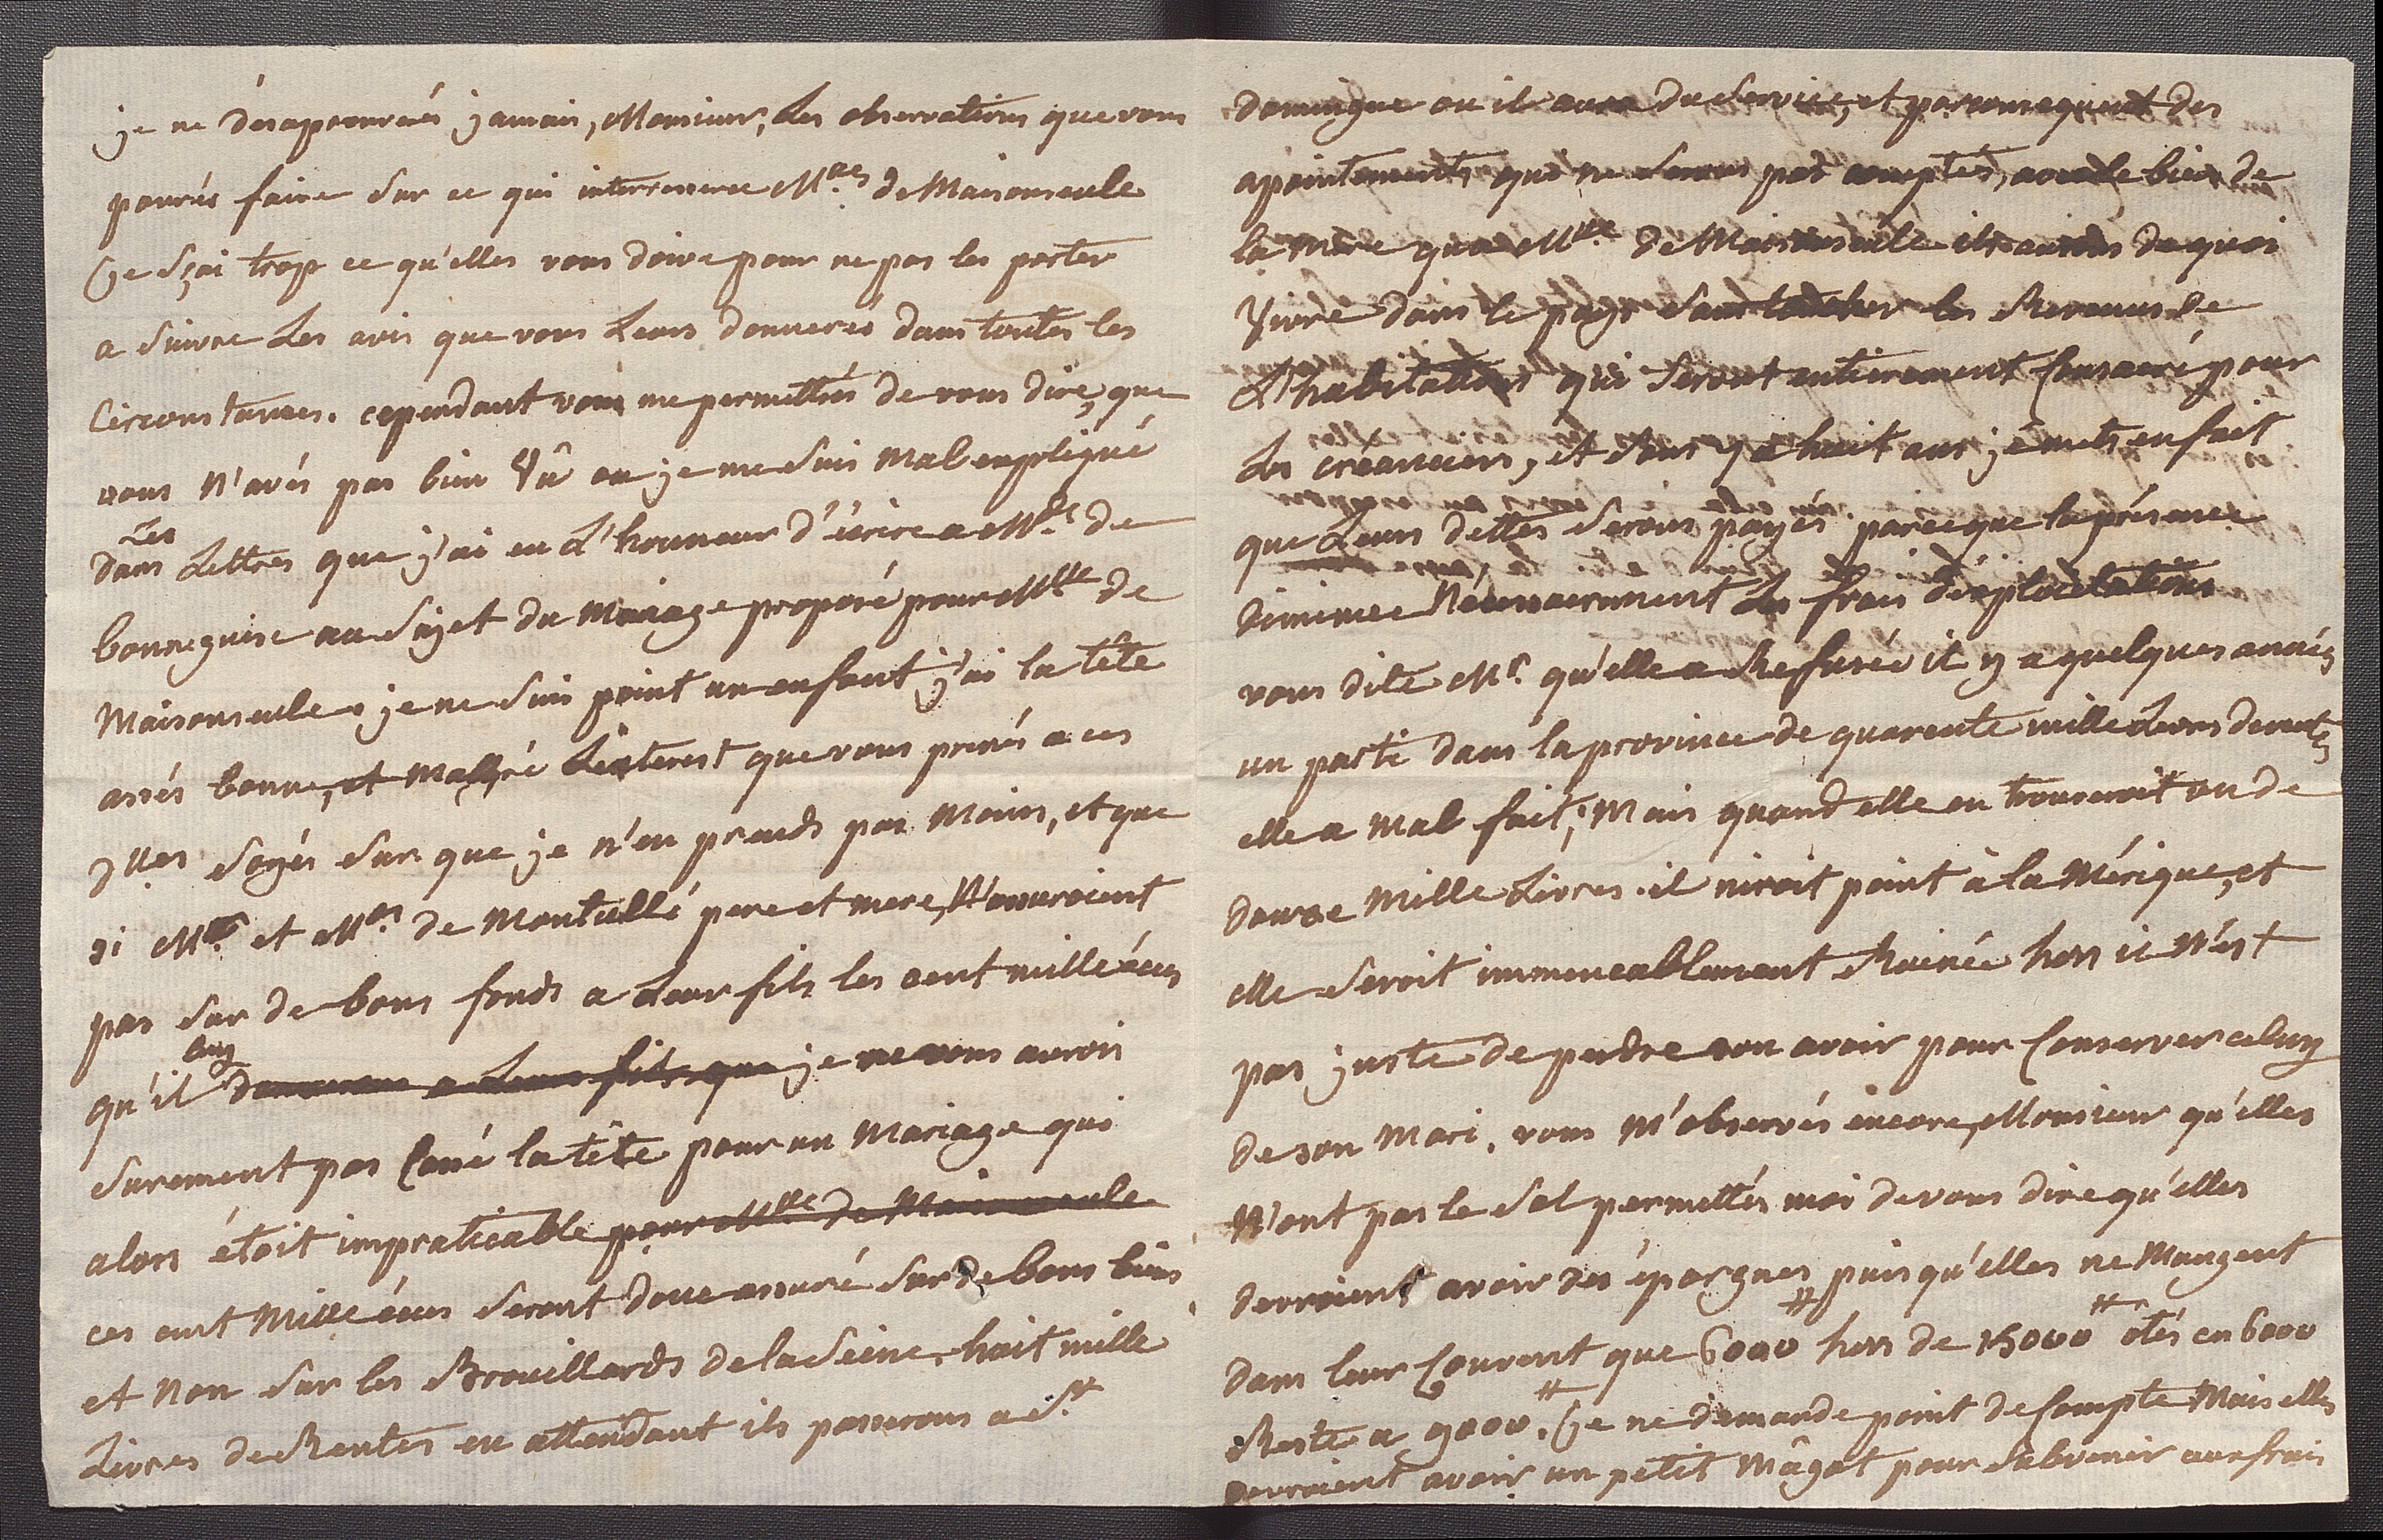 je ne désaprouvrés jamais, Monsieur, Les observations que vous
pourés faire Sur ce qui interressera Mlles de Maisonseule
je Sçai trop ce qu'elles vous doive pour ne pas les porter
a Suivre Les avis que vous Leurs donnerés dans toutes les
Circonstances. cependant vous me permettrés de vous dire, que
vous N'avés pas bien Vû ou je me Suis Mal expliqué
dans Les Lettres que j'ai eu L'honneur d'écrire a Mde de
bonneguise au Sujet du Mariage proposé pour Mlle de
Maisonseule. je ne Suis point un enfant j'ai la tête
assés bonne, et Malgré L'interest que vous prenés a ces
dlles Soyés Sur que je n'en prends pas Moins, et que
si Mr et Mde de Montullé pere et mere, N'assuroient
pas Sur de bons fonds a Leur fils les cent mille écus
qu'il Luy donneront a Leurs fils que je ne vous aurois
Surement pas Cassé la tête pour un Mariage qui
alors étoit impraticable pour Mlle de Maisonseule
ces cent Mille écus Seront donc assuré Sur de bons biens
et Non Sur les Brouillards de la Seine, huit mille
Livres de Rentes en attendant ils passerons a St
domingue ou il aura du Service, et par consequent des
apointements qui ne Serons pas comptés, avec le bien de
la Mere qua Mlle de Maisonseule ils aurons de quoi
Vivre dans le pays Sans toucher les Revenus de
L'habitations qui Seront entierement Consacré pour
Les créanciers, et Sous y a huit ans je mets en fait
que Leurs dettes Serons payés parceque la présence
diminue Nécessairement Les frais d'éxploitations
vous dite Mr qu'elle a Refusée il y a quelques années
un parti dans la province de quarente mille Livres de rentes
elle a Mal fait, Mais quand elle en trouveroit un de
douze Mille Livres. il niroit point à la Mérique, et
elle Seroit immencablement Ruinée hors il N'est
pas juste de perdre son avoir pour Conserver celuy
de son Mari. vous M'observés encore, Monsieur qu'elles
N'ont pas le Sol permettés moi de vous dire qu'elles
devroient avoir des épargnes puis qu'elles ne Mangent
dans leur Couvent que 6000 ₶ hors de 15000 ₶ otés en 6000
Reste a 9000 ₶. je ne demande point de Compte Mais elles
devroient avoir un petit Mâgot pour Subvenir aux frais